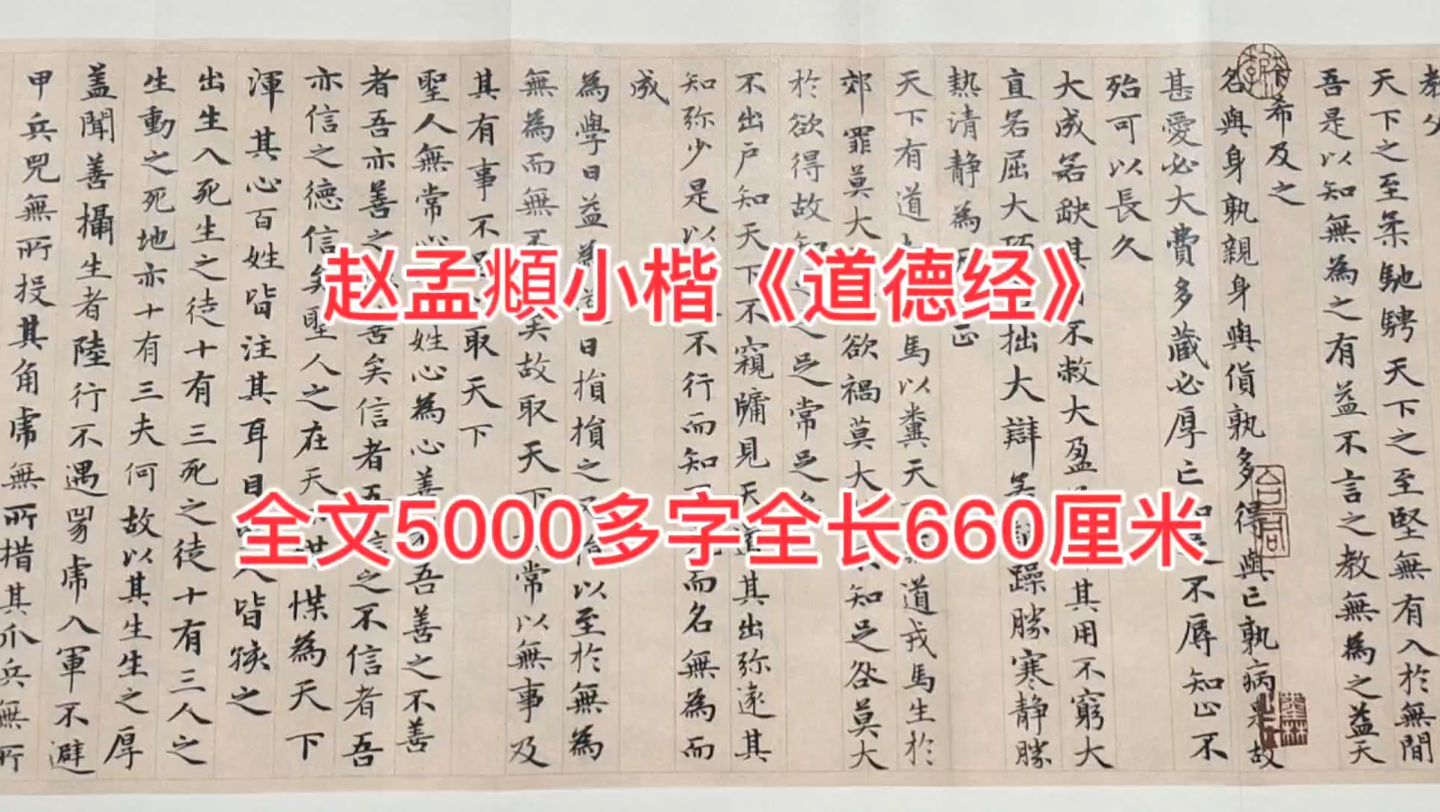 赵孟頫小楷《道德经》
全文5000多字全长660厘米
教父
天下之至柔馳騁天下之至堅無有入於無間
吾是以知無為之有益不言之教無為之益天
希及之
名與身孰親身與貨孰多得與亡孰病是故
甚愛必大費多藏必厚亡知 不辱知止不
殆可以長久
大成若缺其 不敝大盈 其用不窮大
直若屈大巧 拙大辯 躁勝寒静勝
熱清静為 正
天下有道 馬以糞天 道戎馬生於
郊罪莫大 欲禍莫大 知足咎莫大
於欲得故知 之足常足
不出戶知天下不窺牖見天道其出弥遠其
知弥少是以 不行而知 而名無為而
成
為學日益為 日損損之 以至於無為
無為而無不 矣故取天下 常以無事及
其有事不 取天下
聖人無常心 姓心為心善 吾善之不善
者吾亦善之 善矣信者吾信之不信者吾
亦信之德信矣聖人之在天 惵為天下
渾其心百姓皆注其耳目 人皆孩之
出生入死生之徒十有三死之徒十有三人之
生動之死地亦十有三夫何故以其生生之厚
蓋聞善攝生者陸行不遇兕虎入軍不避
甲兵兕無所投其角虎無所措其爪兵無所
合同